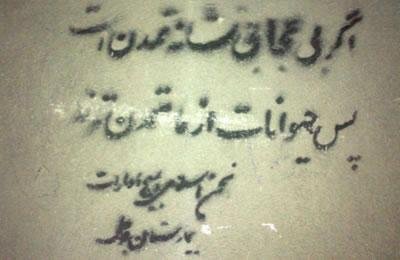 اگر بی حجابی نشانه تمدن است
پس حیوانات از ما متمدن ترند
انجمن اسلامی
بیمارستان